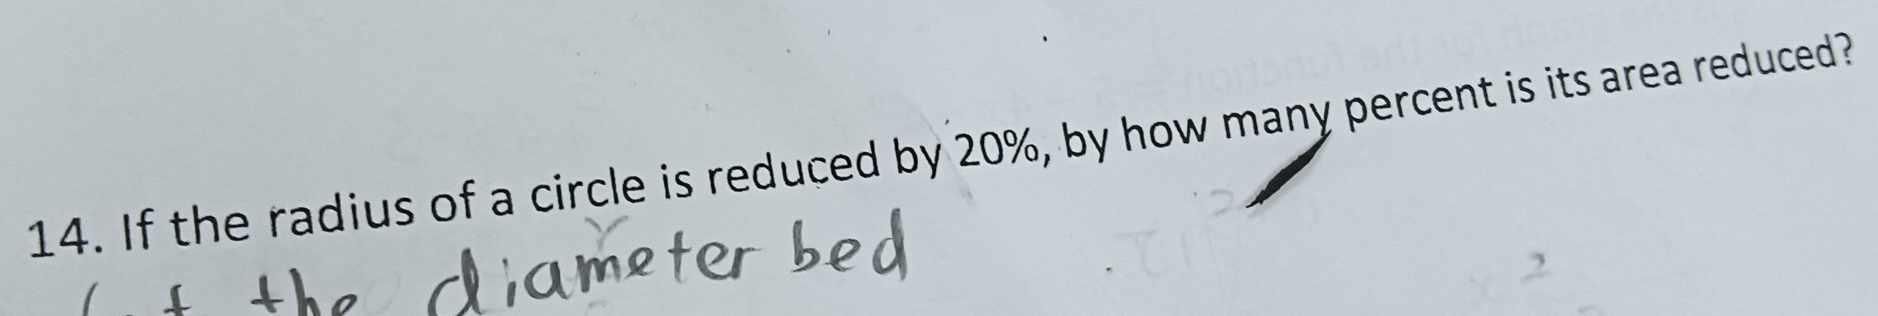 14. If the radius of a circle is reduced by 20%, by how many percent is its area reduced?
the diameter bed